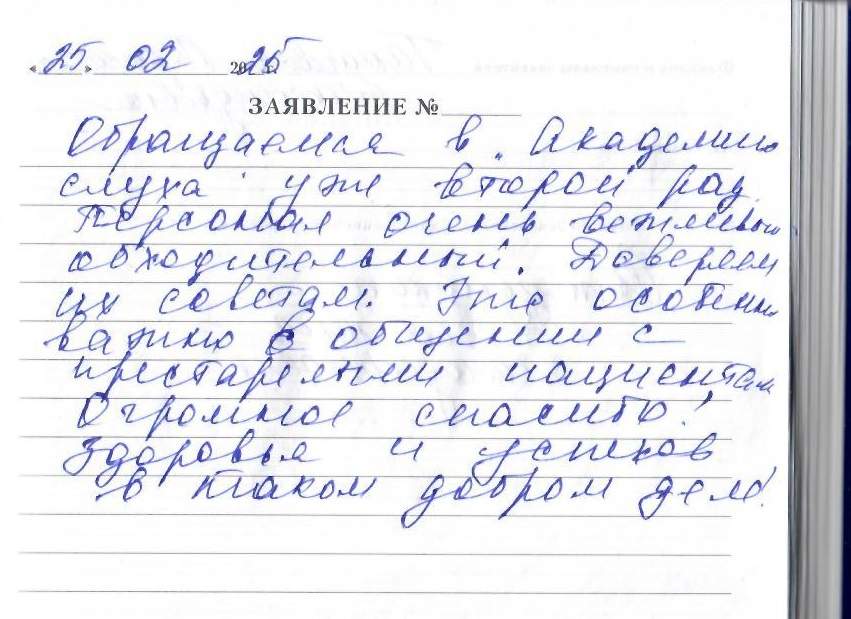 « 25 » 02 2025 г.
ЗАЯВЛЕНИЕ №
Обращаемся в „Академию
слуха" уже второй раз.
Персонал очень вежливый
обходительный. Доверяем
их советам. Это особенно
важно в общении с
престарелыми пациентами
Огромное спасибо!
Здоровья и успехов
в таком добром деле!